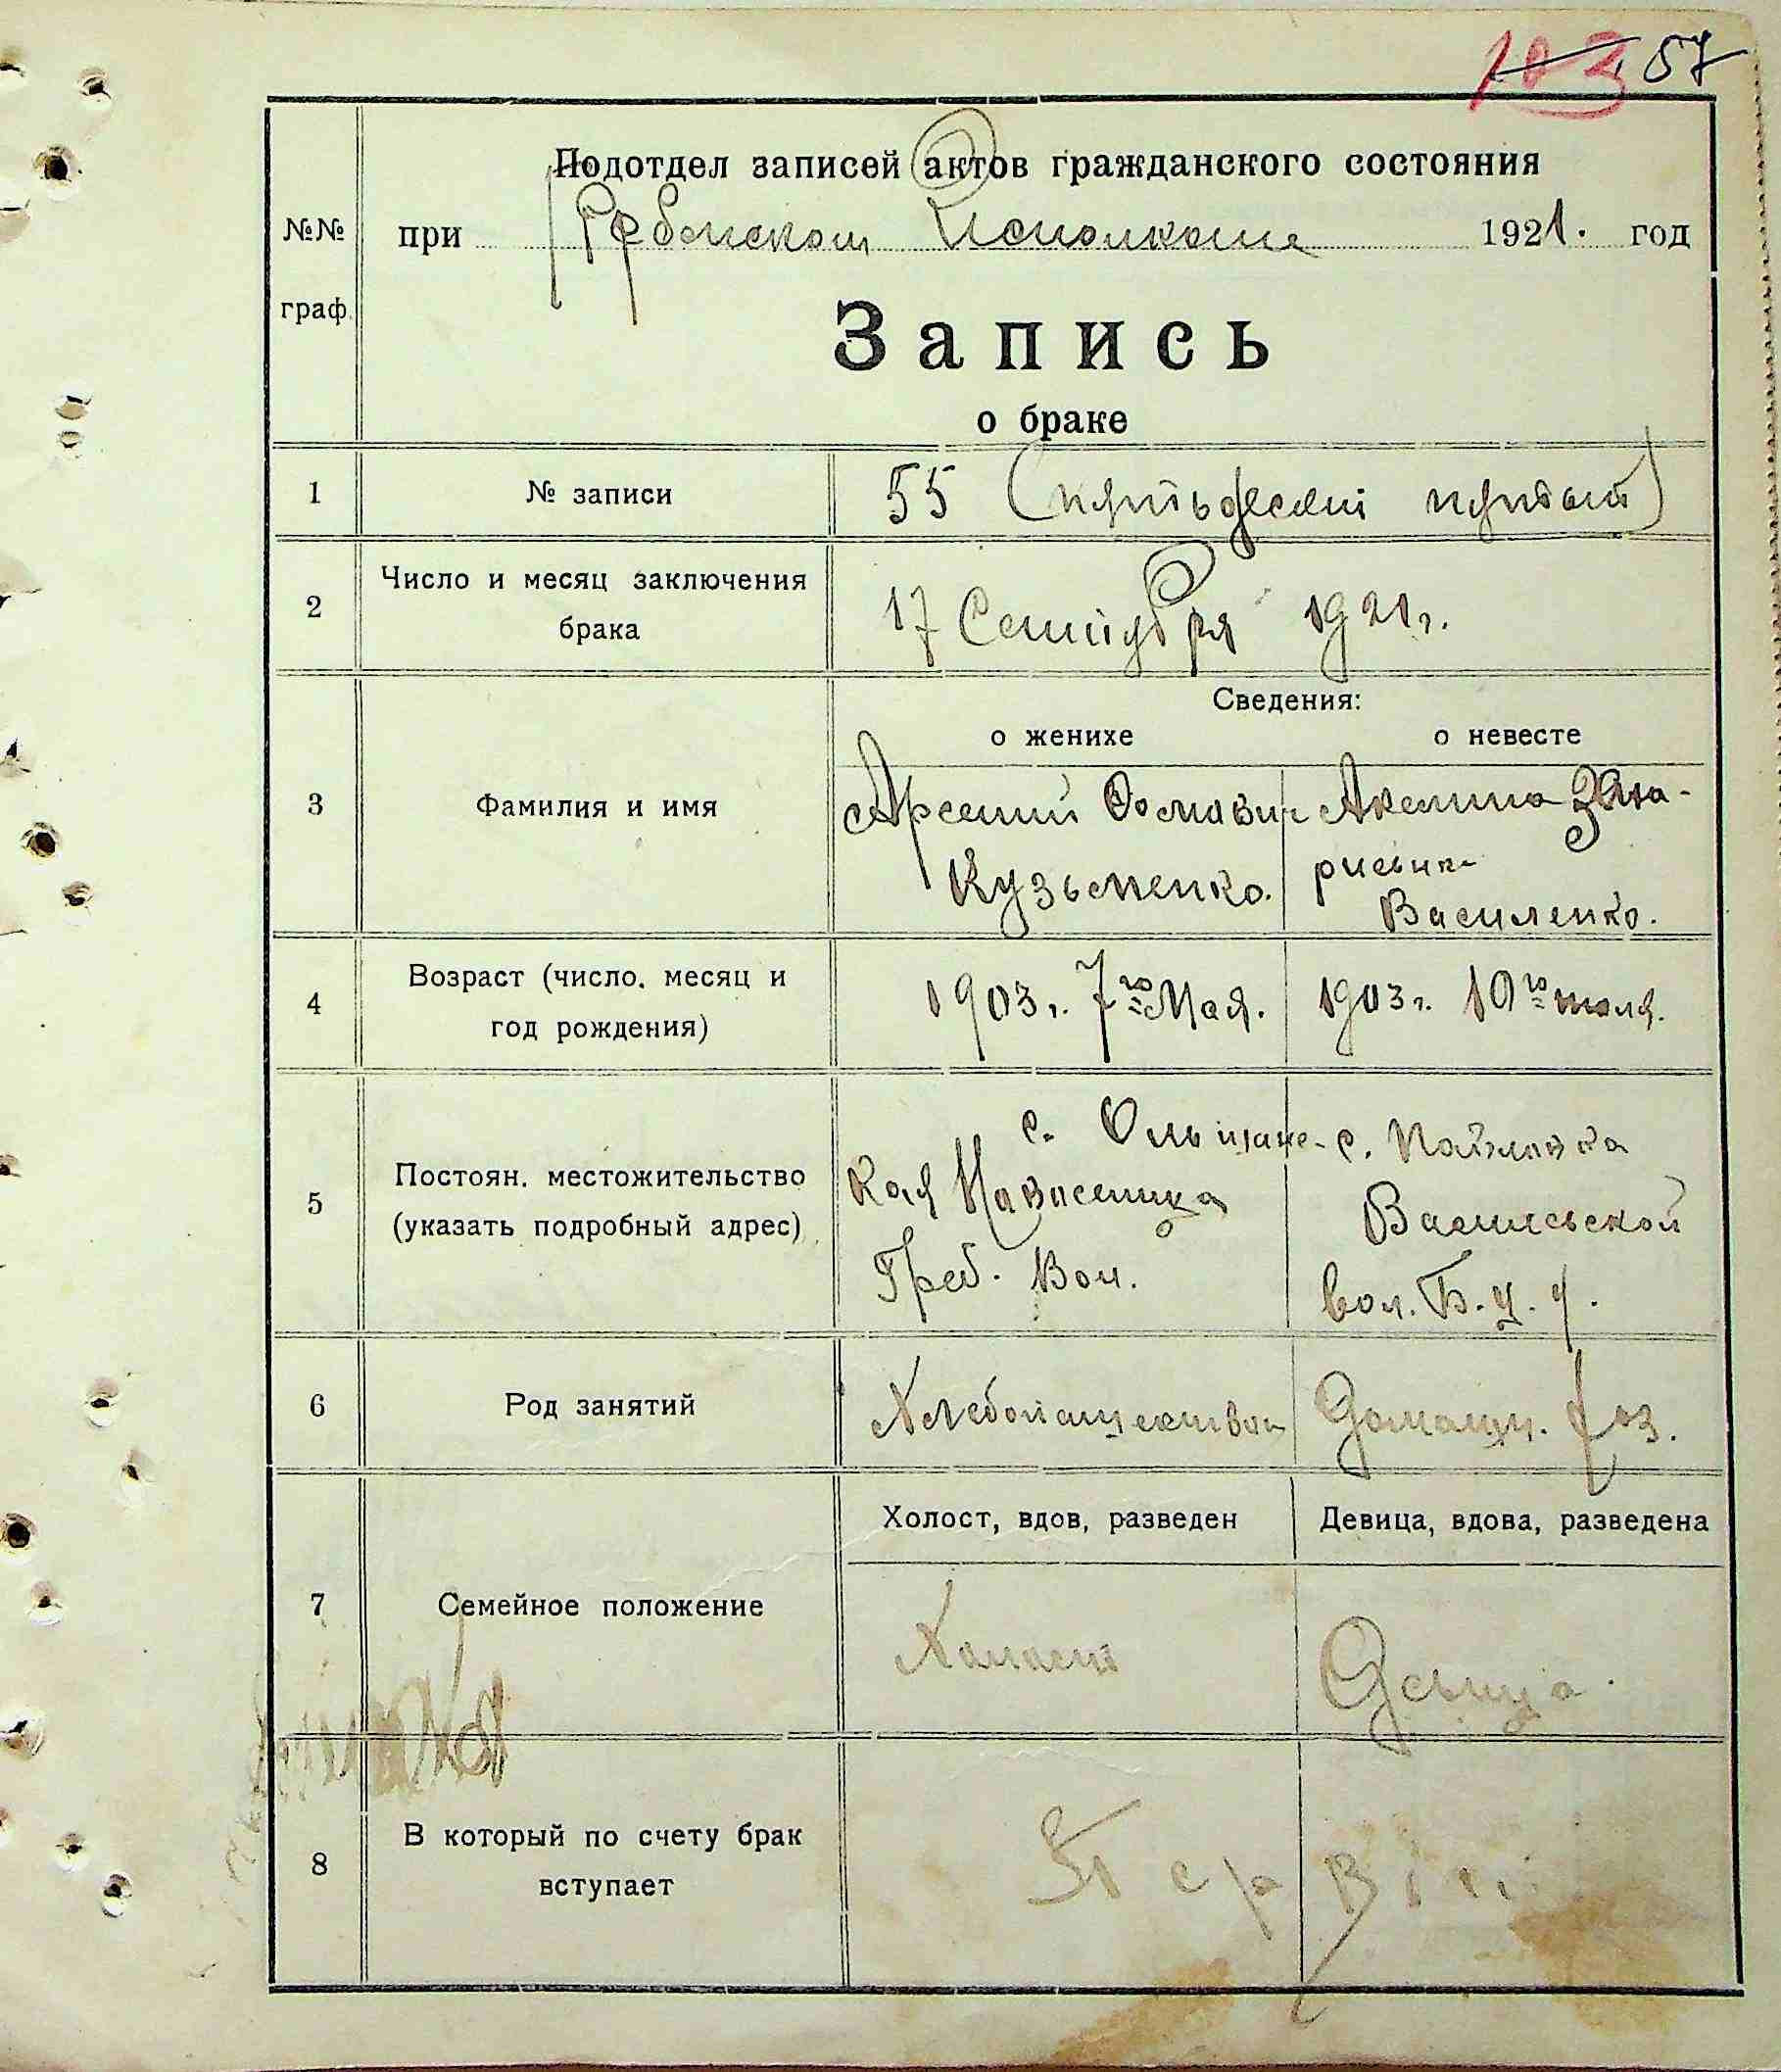 103 57
Подотдел записей актов гражданского состояния
№№ при Исполкоме 1921. год
граф.
Запись
о браке
1 № записи 55 (пятьдесят пятый)
2 Число и месяц заключения брака 17 Сентября 1921 г.
Сведения:
о женихе о невесте
3 Фамилия и имя
Арсений Кузьменко.
Акелина Заха-
риевна
Василенко.
4 Возраст (число, месяц и год рождения) 1903 г. 7го Мая. 1903 г. 10го июля.
5 Постоян. местожительство (указать подробный адрес)
с. Ольшанс-
кая Новоселица
Греб. Вол.
с. Павловка
Васильевской
вол. Б. Ц. у.
6 Род занятий Хлебопашеством Домашн. хоз.
7 Семейное положение
Холост, вдов, разведен Девица, вдова, разведена
Холост Девица.
8 В который по счету брак вступает Первый